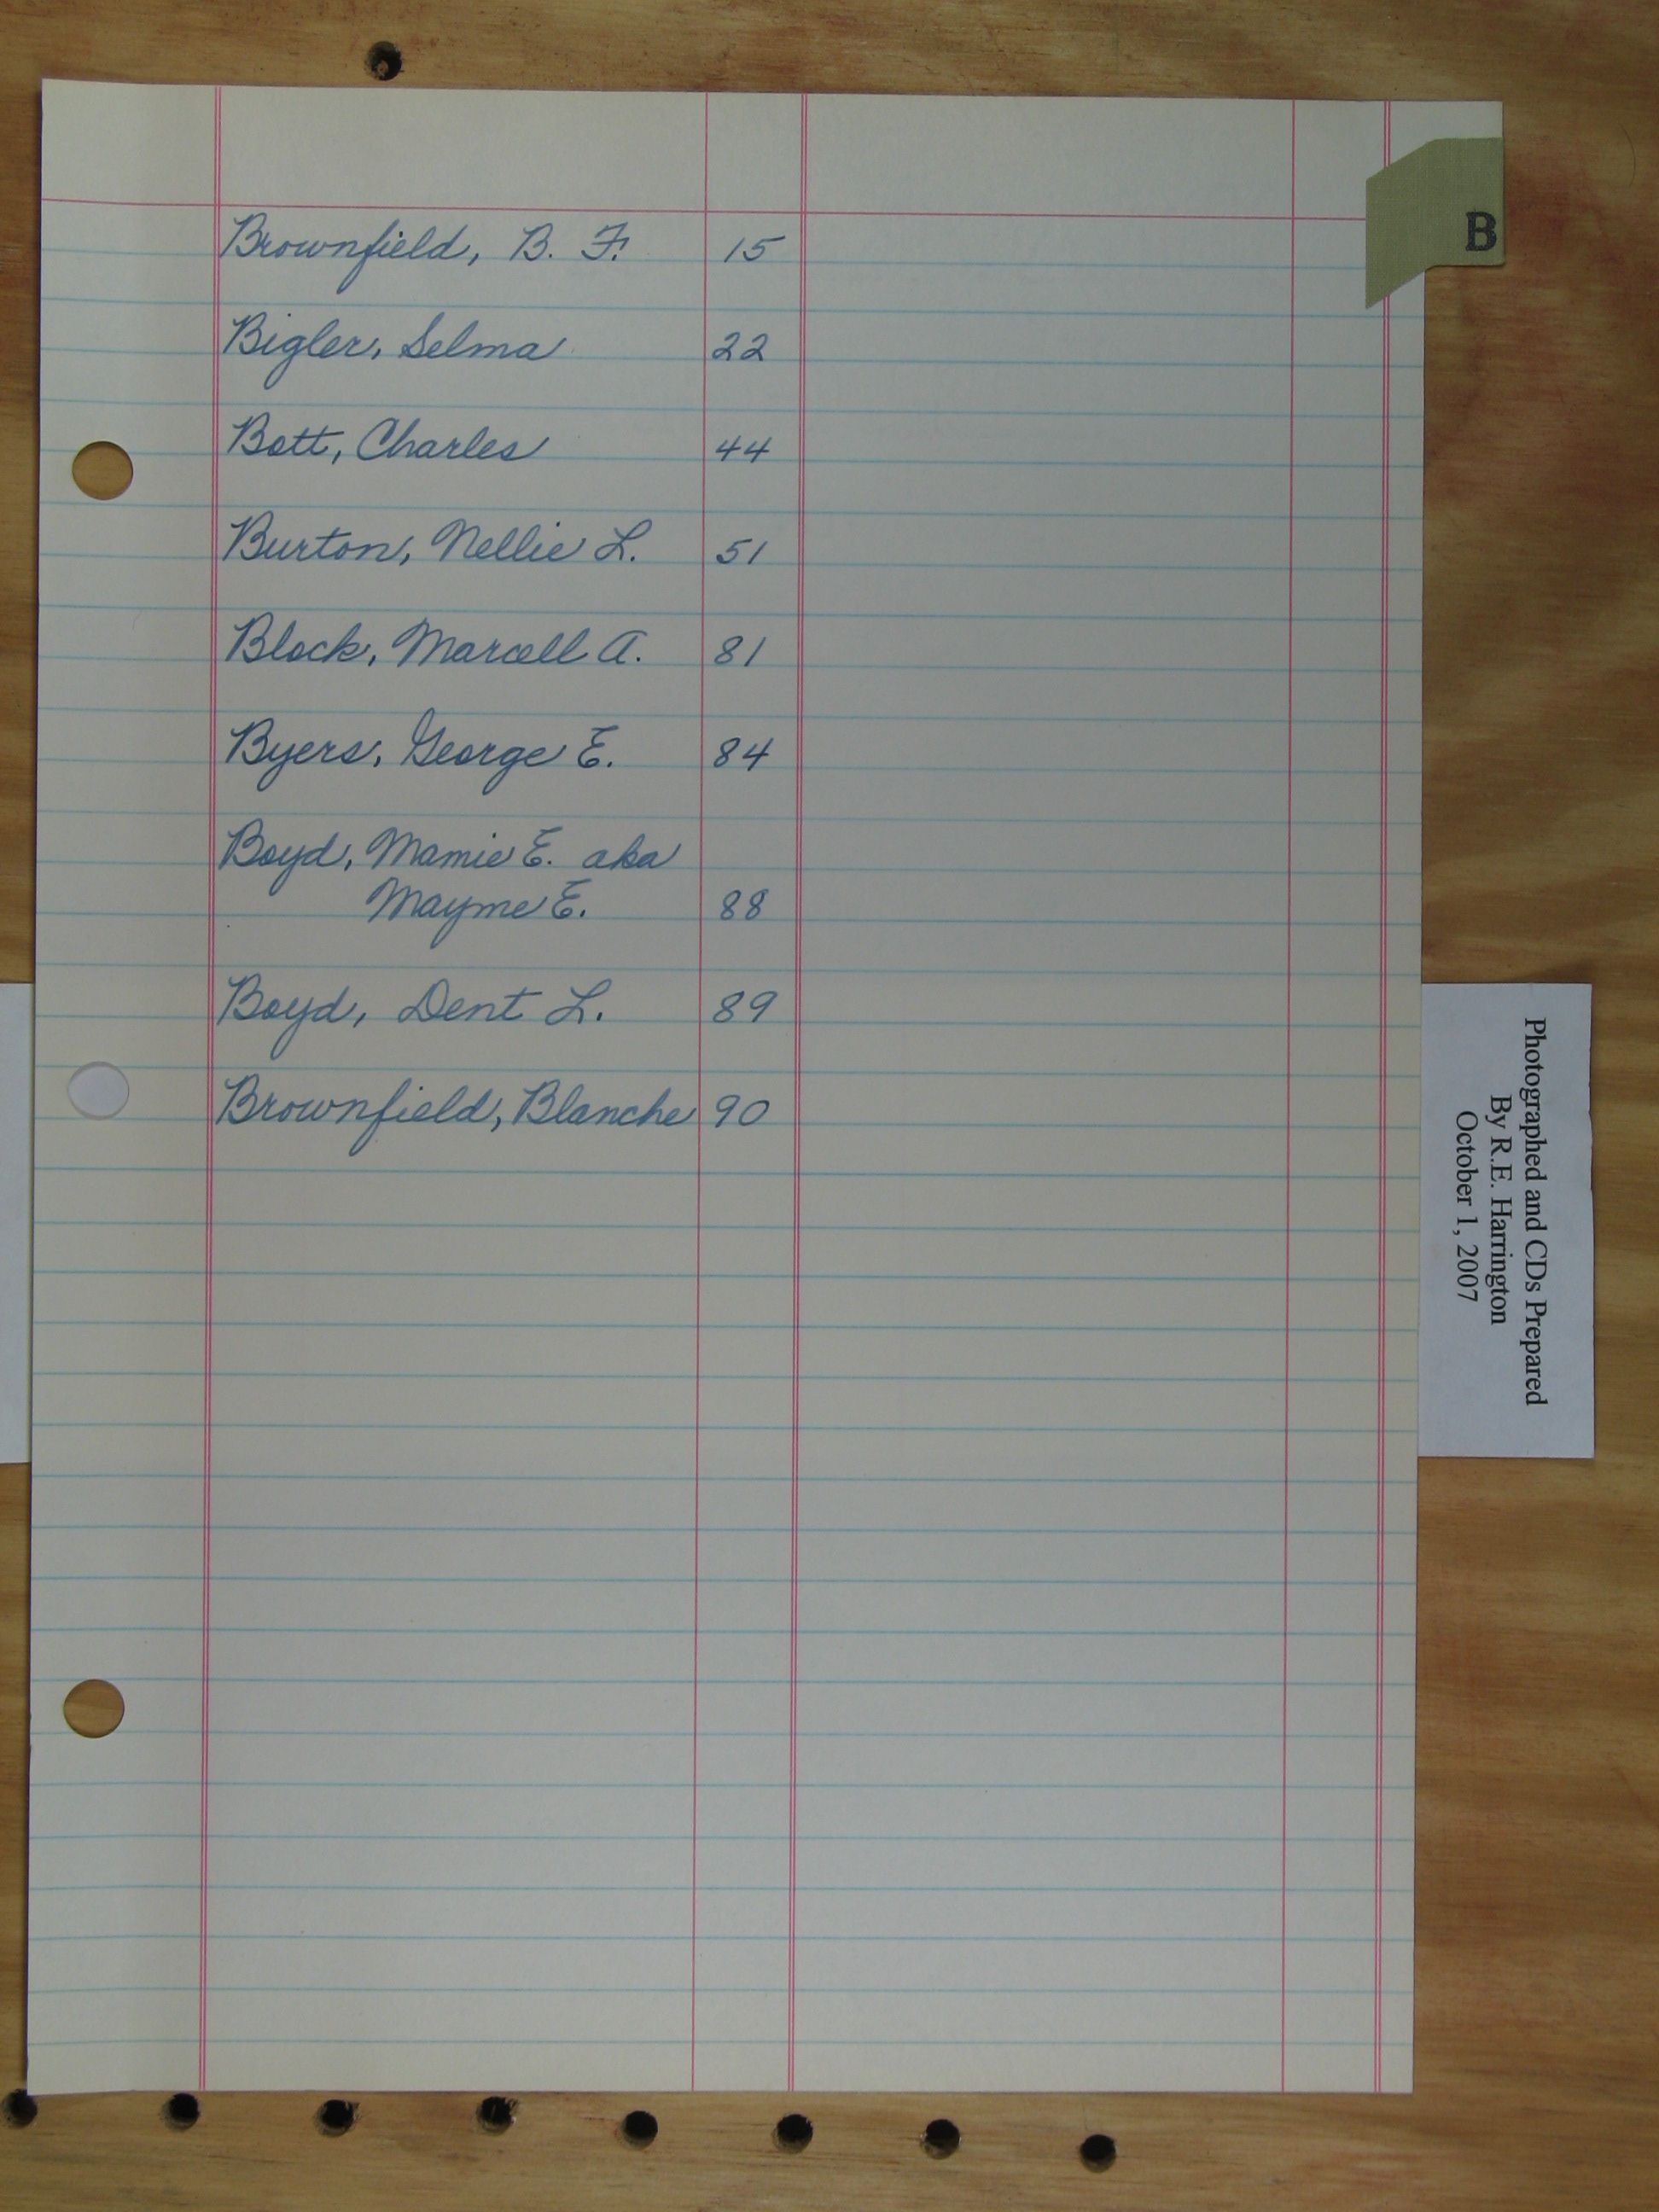 B
Brownfield, B. F. 15
Bigler, Selma 22
Bott, Charles 44
Burton, Nellie L. 51
Block, Marcell A. 81
Byers, George E. 84
Boyd, Mamie E. aka
Mayme E. 88
Boyd, Dent L. 89
Brownfield, Blanche 90
Photographed and CDs Prepared
By R.E. Harrington
October 1, 2007